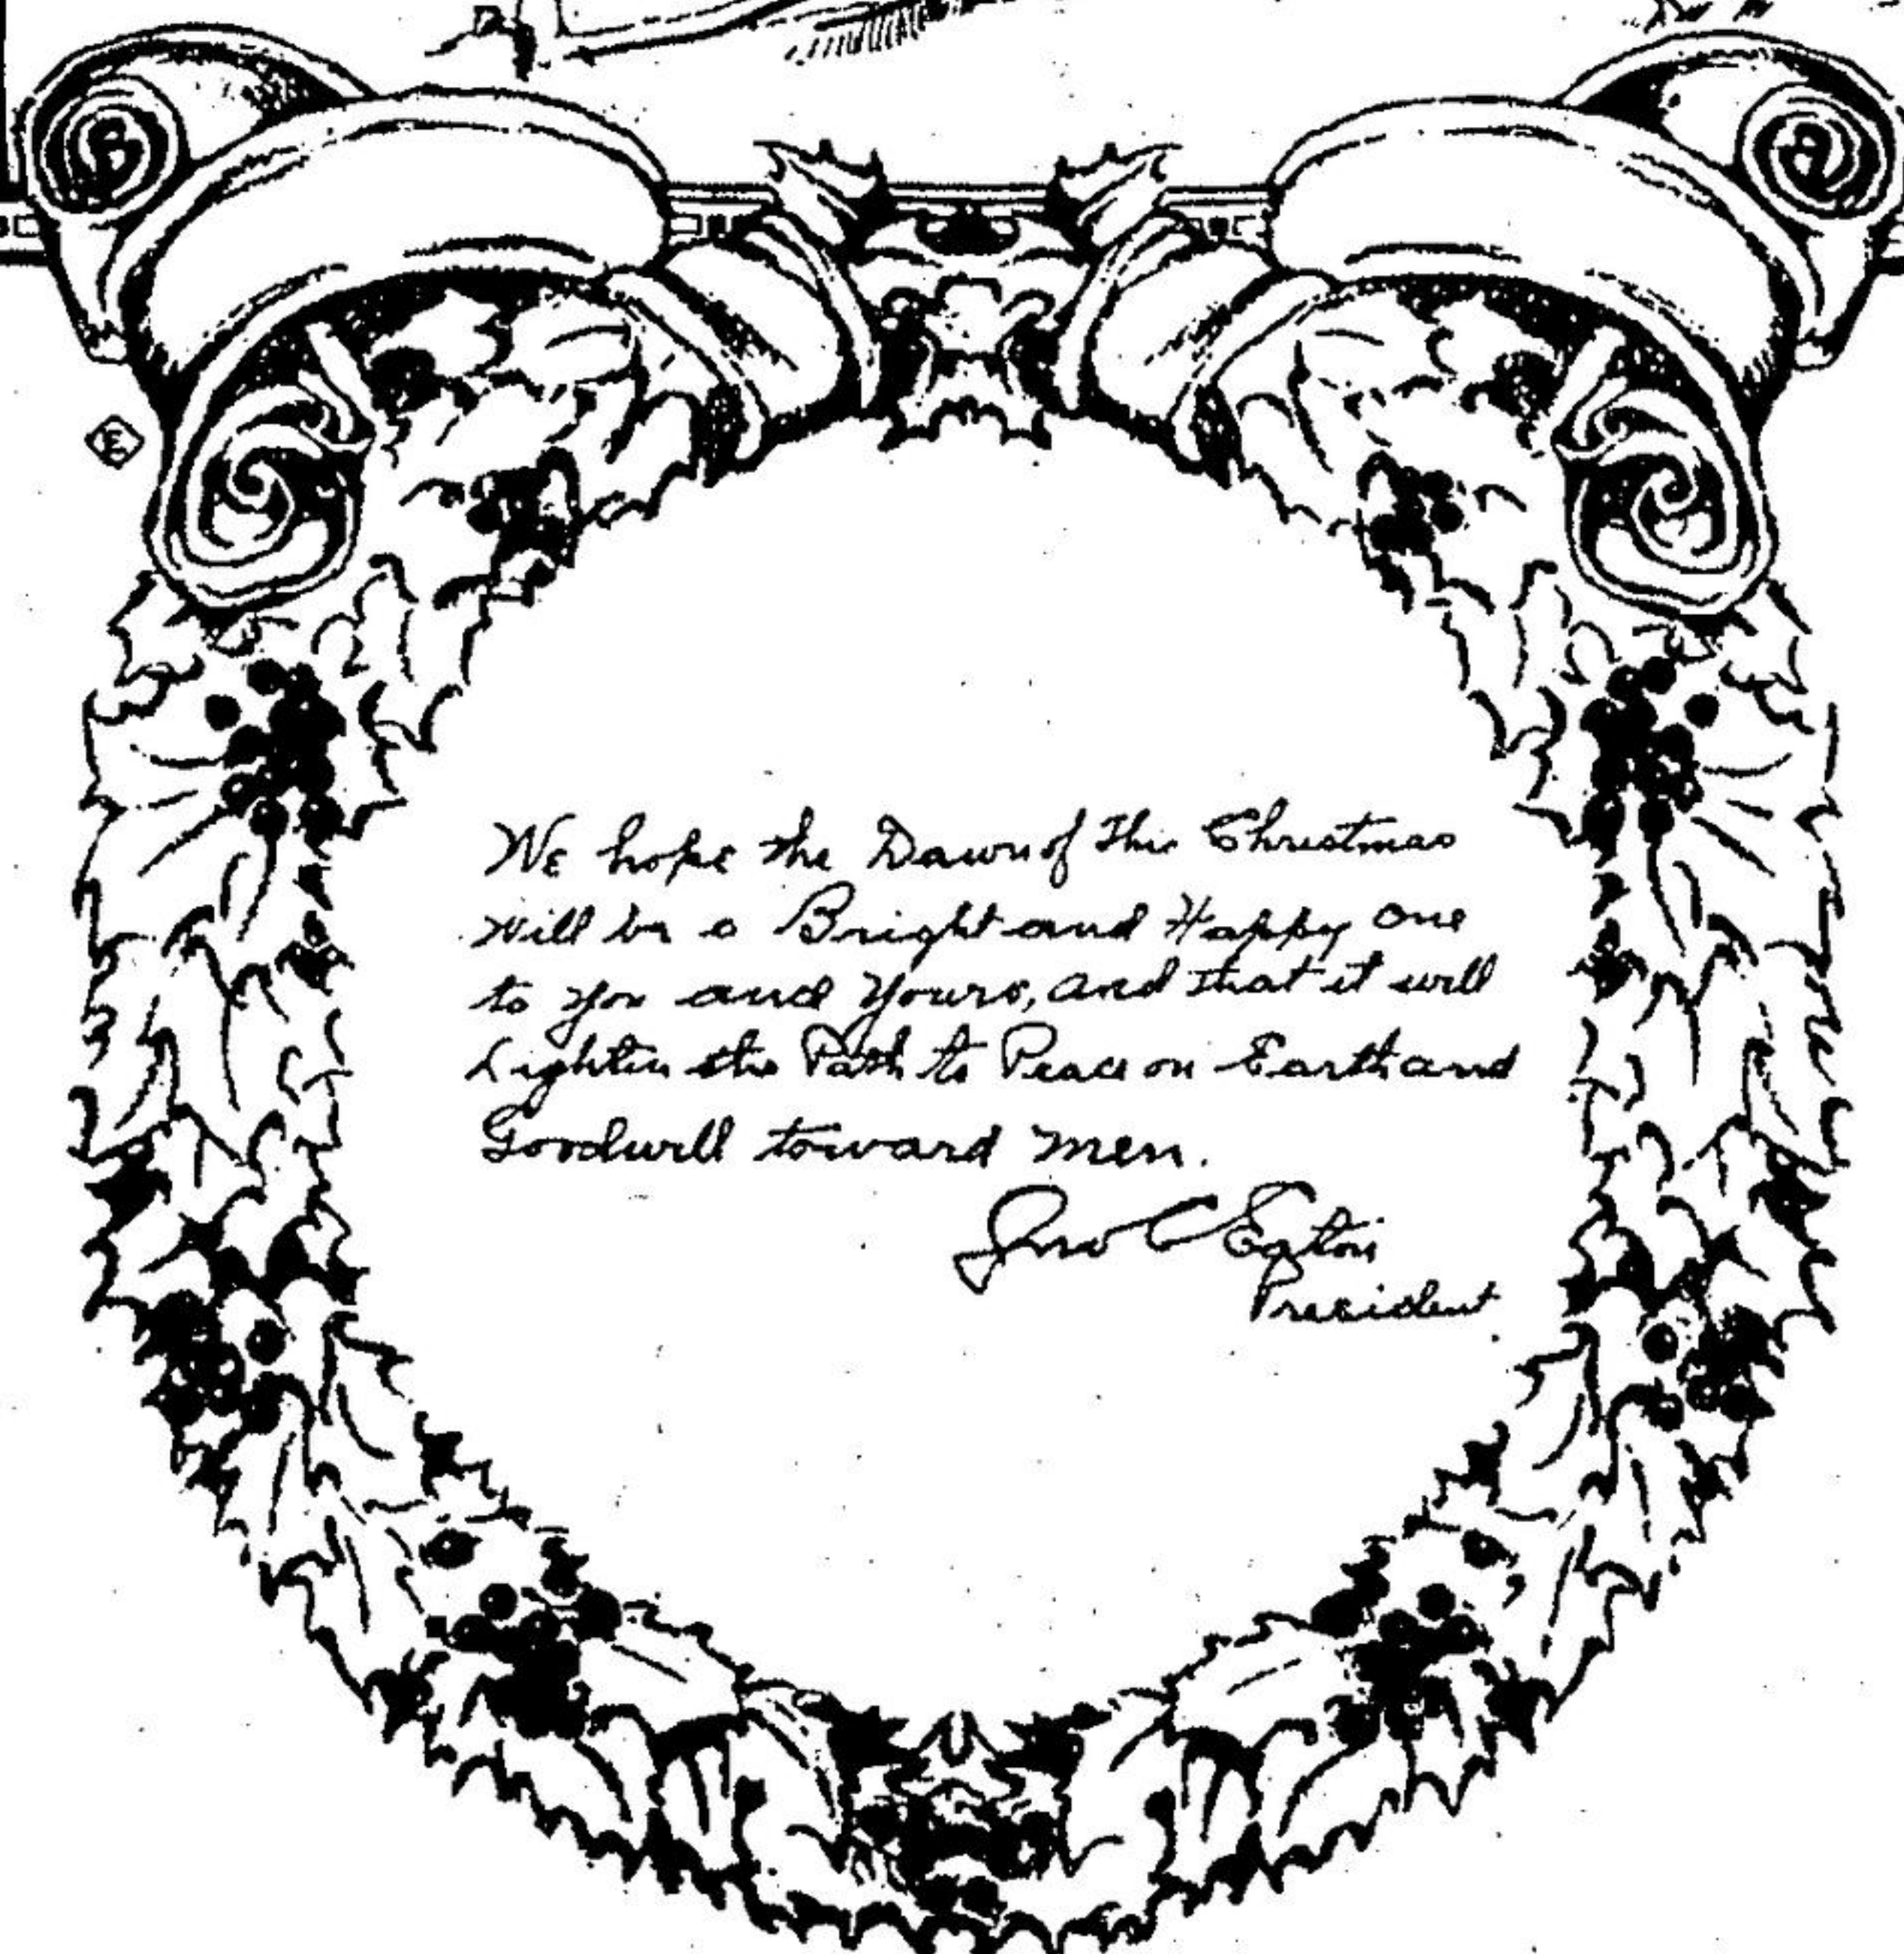 E
We hope the Dawn of This Christmas
will be a Bright and Happy one
to you and Yours, and that it will
Lighten the Path to Peace on Earth and
Goodwill toward men.
Jno C Eaton
President